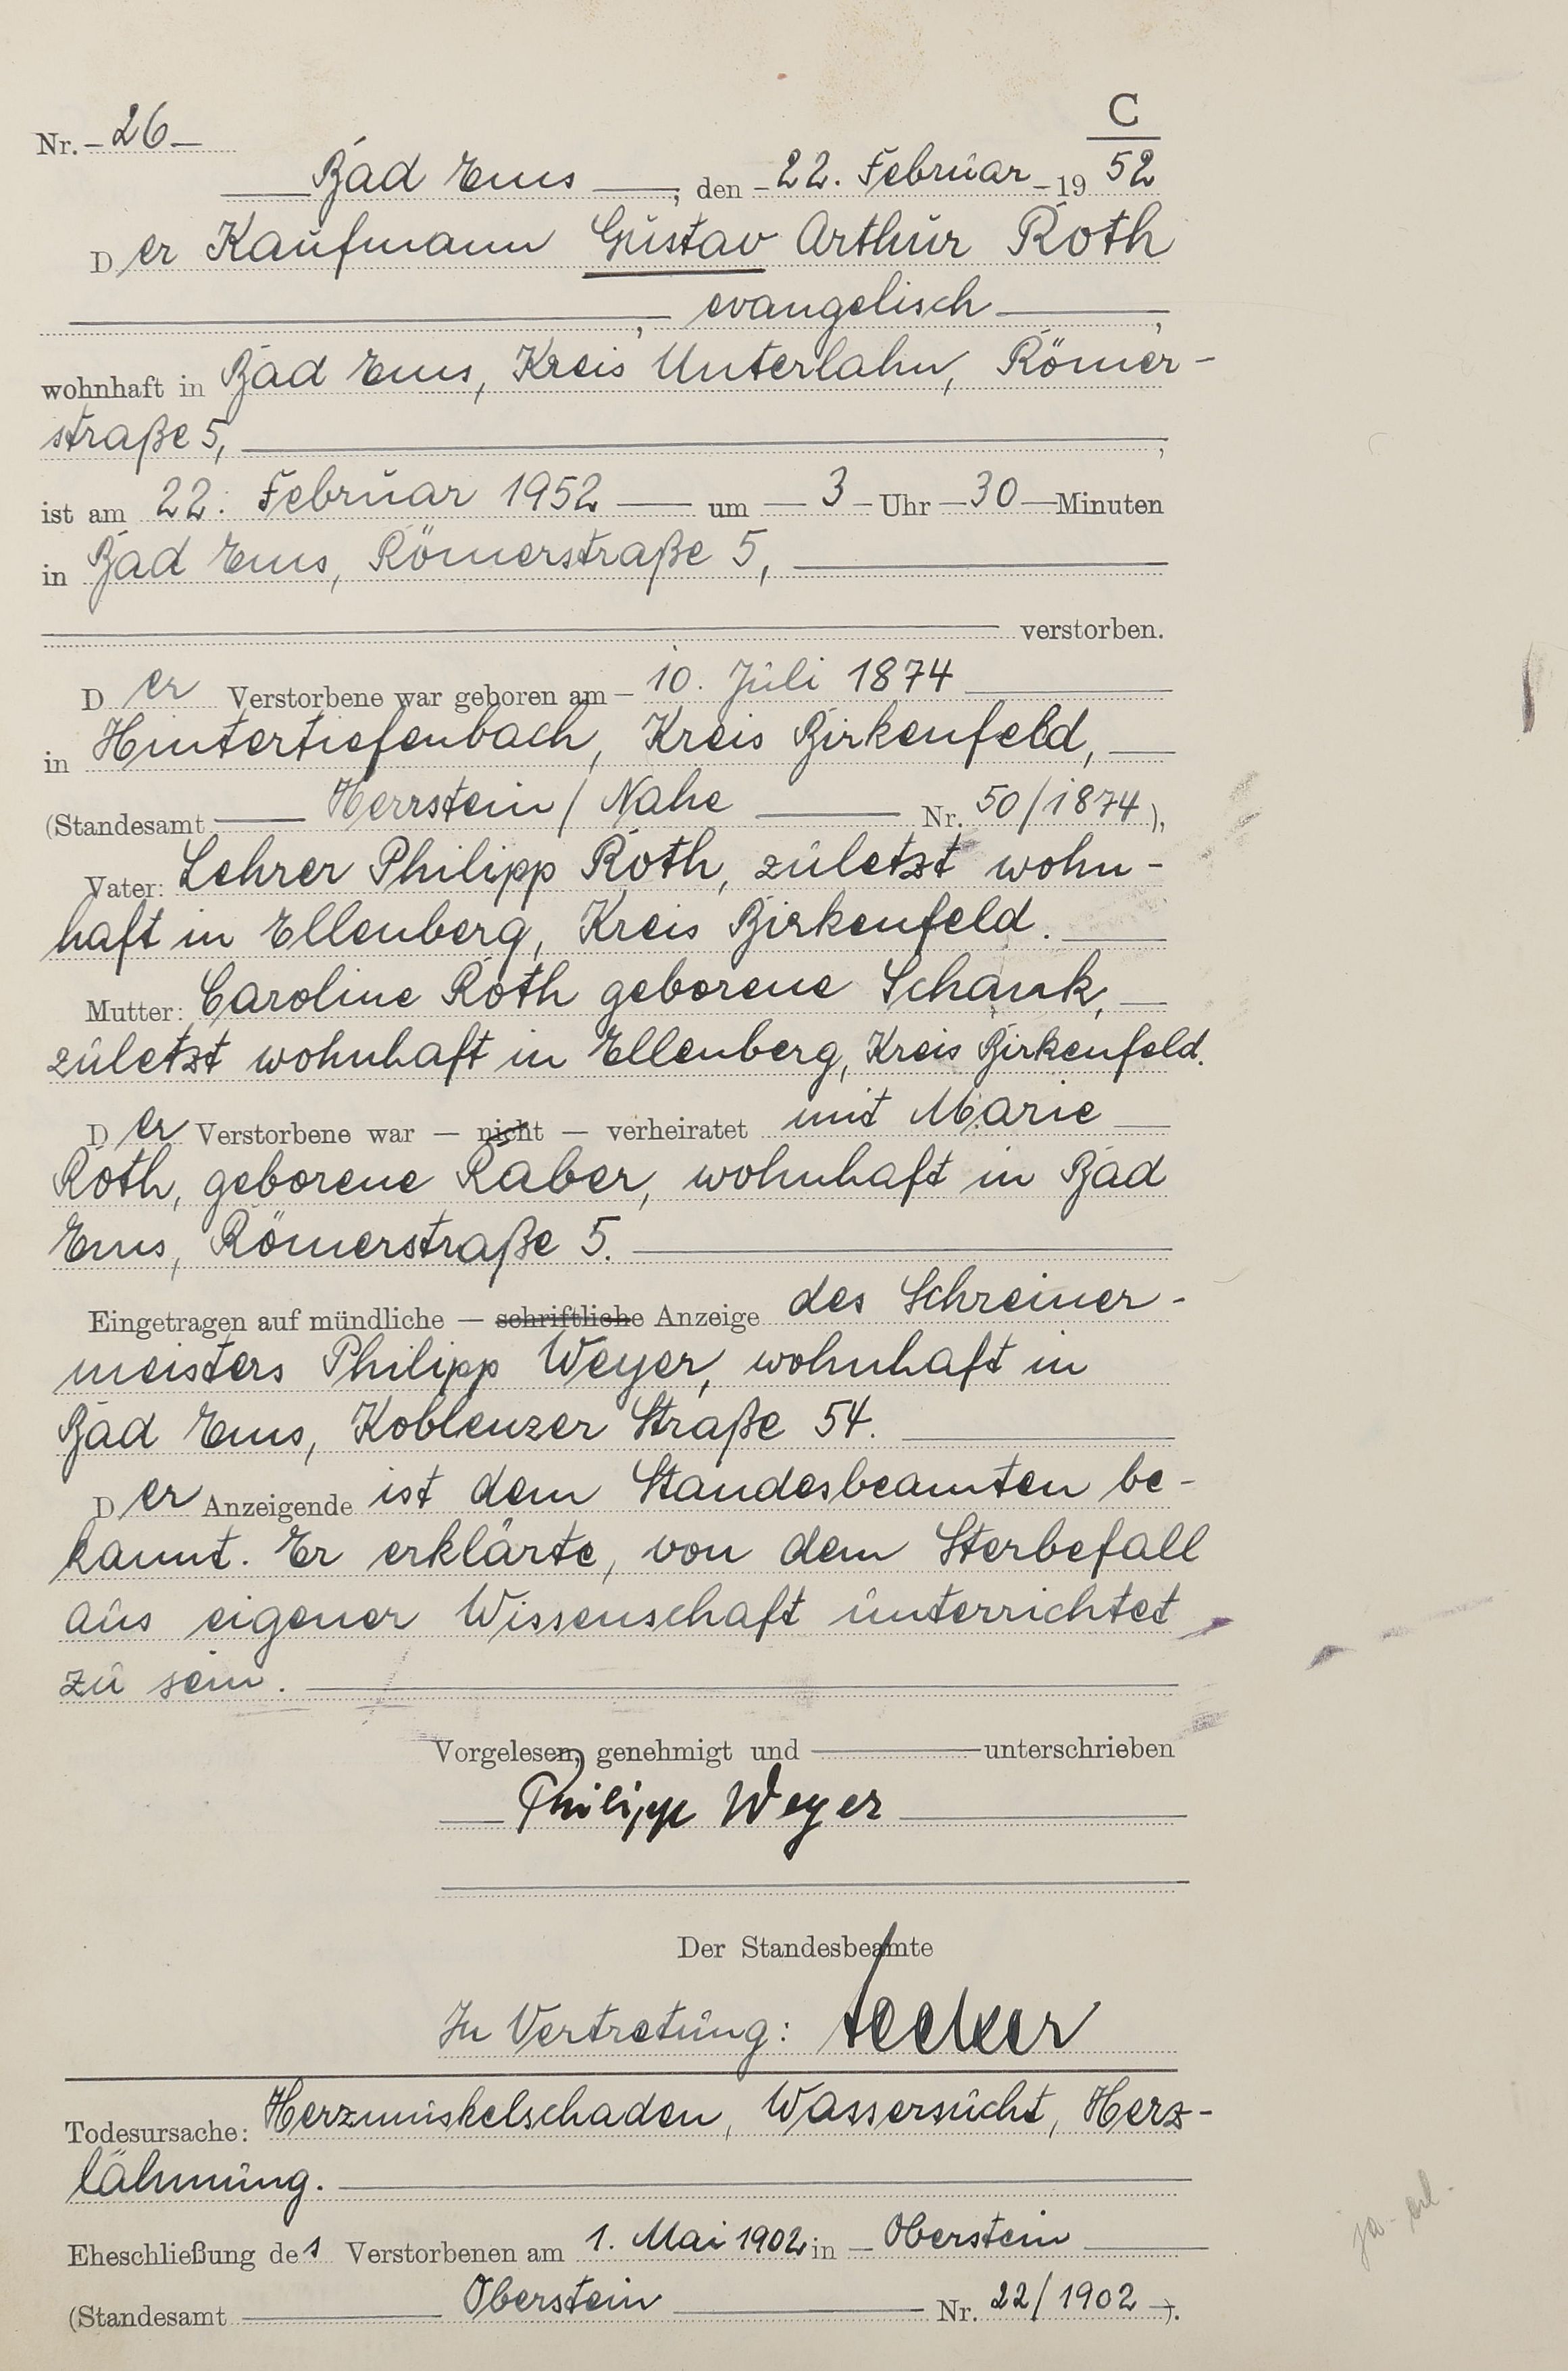 C
Nr. – 26 –
Bad Ems, den – 22. Februar – 19 52
Der Kaufmann Gustav Arthur Roth
, evangelisch ,
wohnhaft in Bad Ems, Kreis Unterlahn, Römer-
straße 5, ,
ist am 22. Februar 1952 um 3 Uhr 30 Minuten
in Bad Ems, Römerstraße 5,
verstorben.
Der Verstorbene war geboren am – 10. Juli 1874
in Hintertiefenbach, Kreis Birkenfeld,
(Standesamt Herrstein / Nahe Nr. 50/1874),
Vater: Lehrer Philipp Roth, zuletzt wohn-
haft in Ellenberg, Kreis Birkenfeld.
Mutter: Caroline Roth geborene Schank,
zuletzt wohnhaft in Ellenberg, Kreis Birkenfeld.
Der Verstorbene war – nicht – verheiratet mit Marie
Roth, geborene Räber, wohnhaft in Bad
Ems, Römerstraße 5.
Eingetragen auf mündliche – schriftliche Anzeige des Schreiner-
meisters Philipp Weyer, wohnhaft in
Bad Ems, Koblenzer Straße 54.
Der Anzeigende ist dem Standesbeamten be-
kannt. Er erklärte, von dem Sterbefall
aus eigener Wissenschaft unterrichtet
zu sein.
Vorgelesen, genehmigt und unterschrieben
Philipp Weyer
Der Standesbeamte
In Vertretung:
Todesursache: Herzmuskelschaden, Wassersucht, Herz-
lähmung.
Eheschließung des Verstorbenen am 1. Mai 1902 in – Oberstein
(Standesamt Oberstein Nr. 22/1902 –).